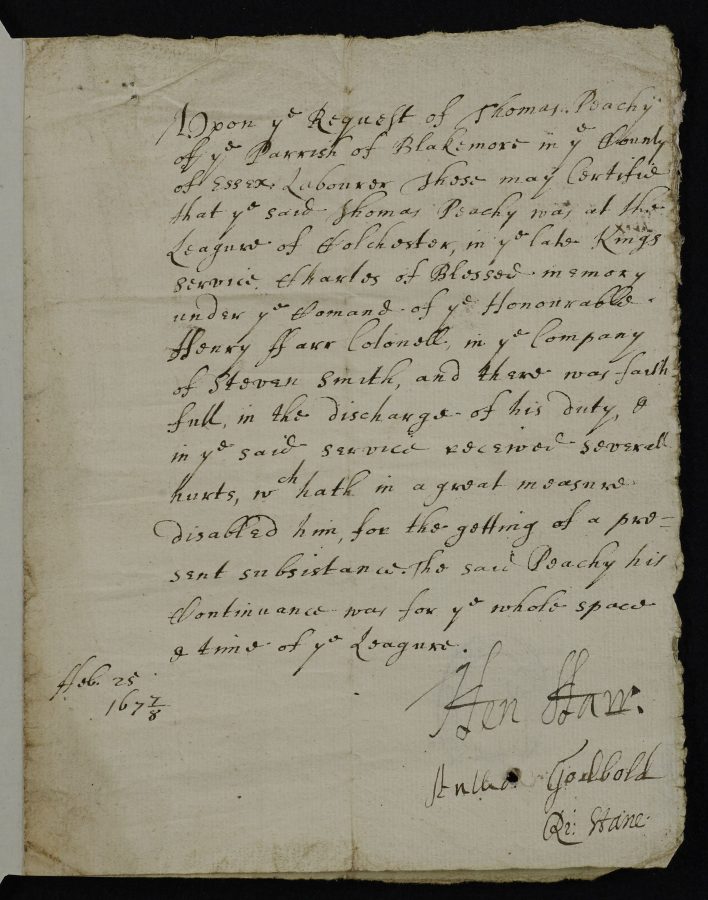 Upon ye Request of Thomas Peachy
of ye Parrish of Blakemore in ye County
of Essex Labourer These may Certifie
that ye said Thomas Peachy was at the
Leagure of Colchester, in ye late Kings
service, Charles of Blessed memory
under ye Comand of ye Honourable
Henry ffarr Colonell, in ye Company
of Steven Smith, and there was faith
full, in the discharge of his duty, &
in ye said service received severall
hurts, wch hath in a great measure
disabled him, for the getting of a pre=
sent subsistance. The said Peachy his
Continuance was for ye whole space
& time of ye Leagure.
ffeb. 25
167 7/8
Hen ffarr.
Godbold
Ri: